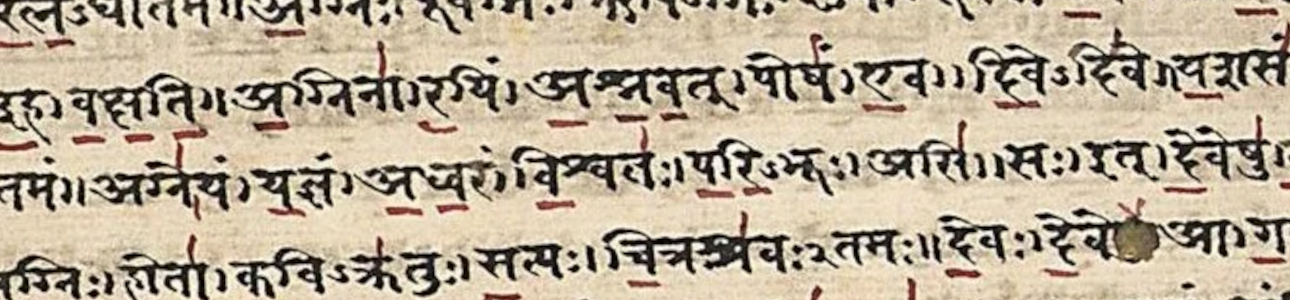 रत्नऽधातमम्॥अग्निः।पूर्वेभिः।
इह।वक्षति॥अग्निना।रयिं।अश्नवत्।पोषं।एव।।दिवेऽदिवे॥यशसं
तमं॥अग्ने।यं।यज्ञं।अध्वरं।विश्वतः।परिऽभूः।असि।।सः।इत्।देवेषु।
अग्निः।होता।कविऽक्रतुः।सत्यः।चित्रश्रवःऽतमः॥देवः।देवे आ।ग